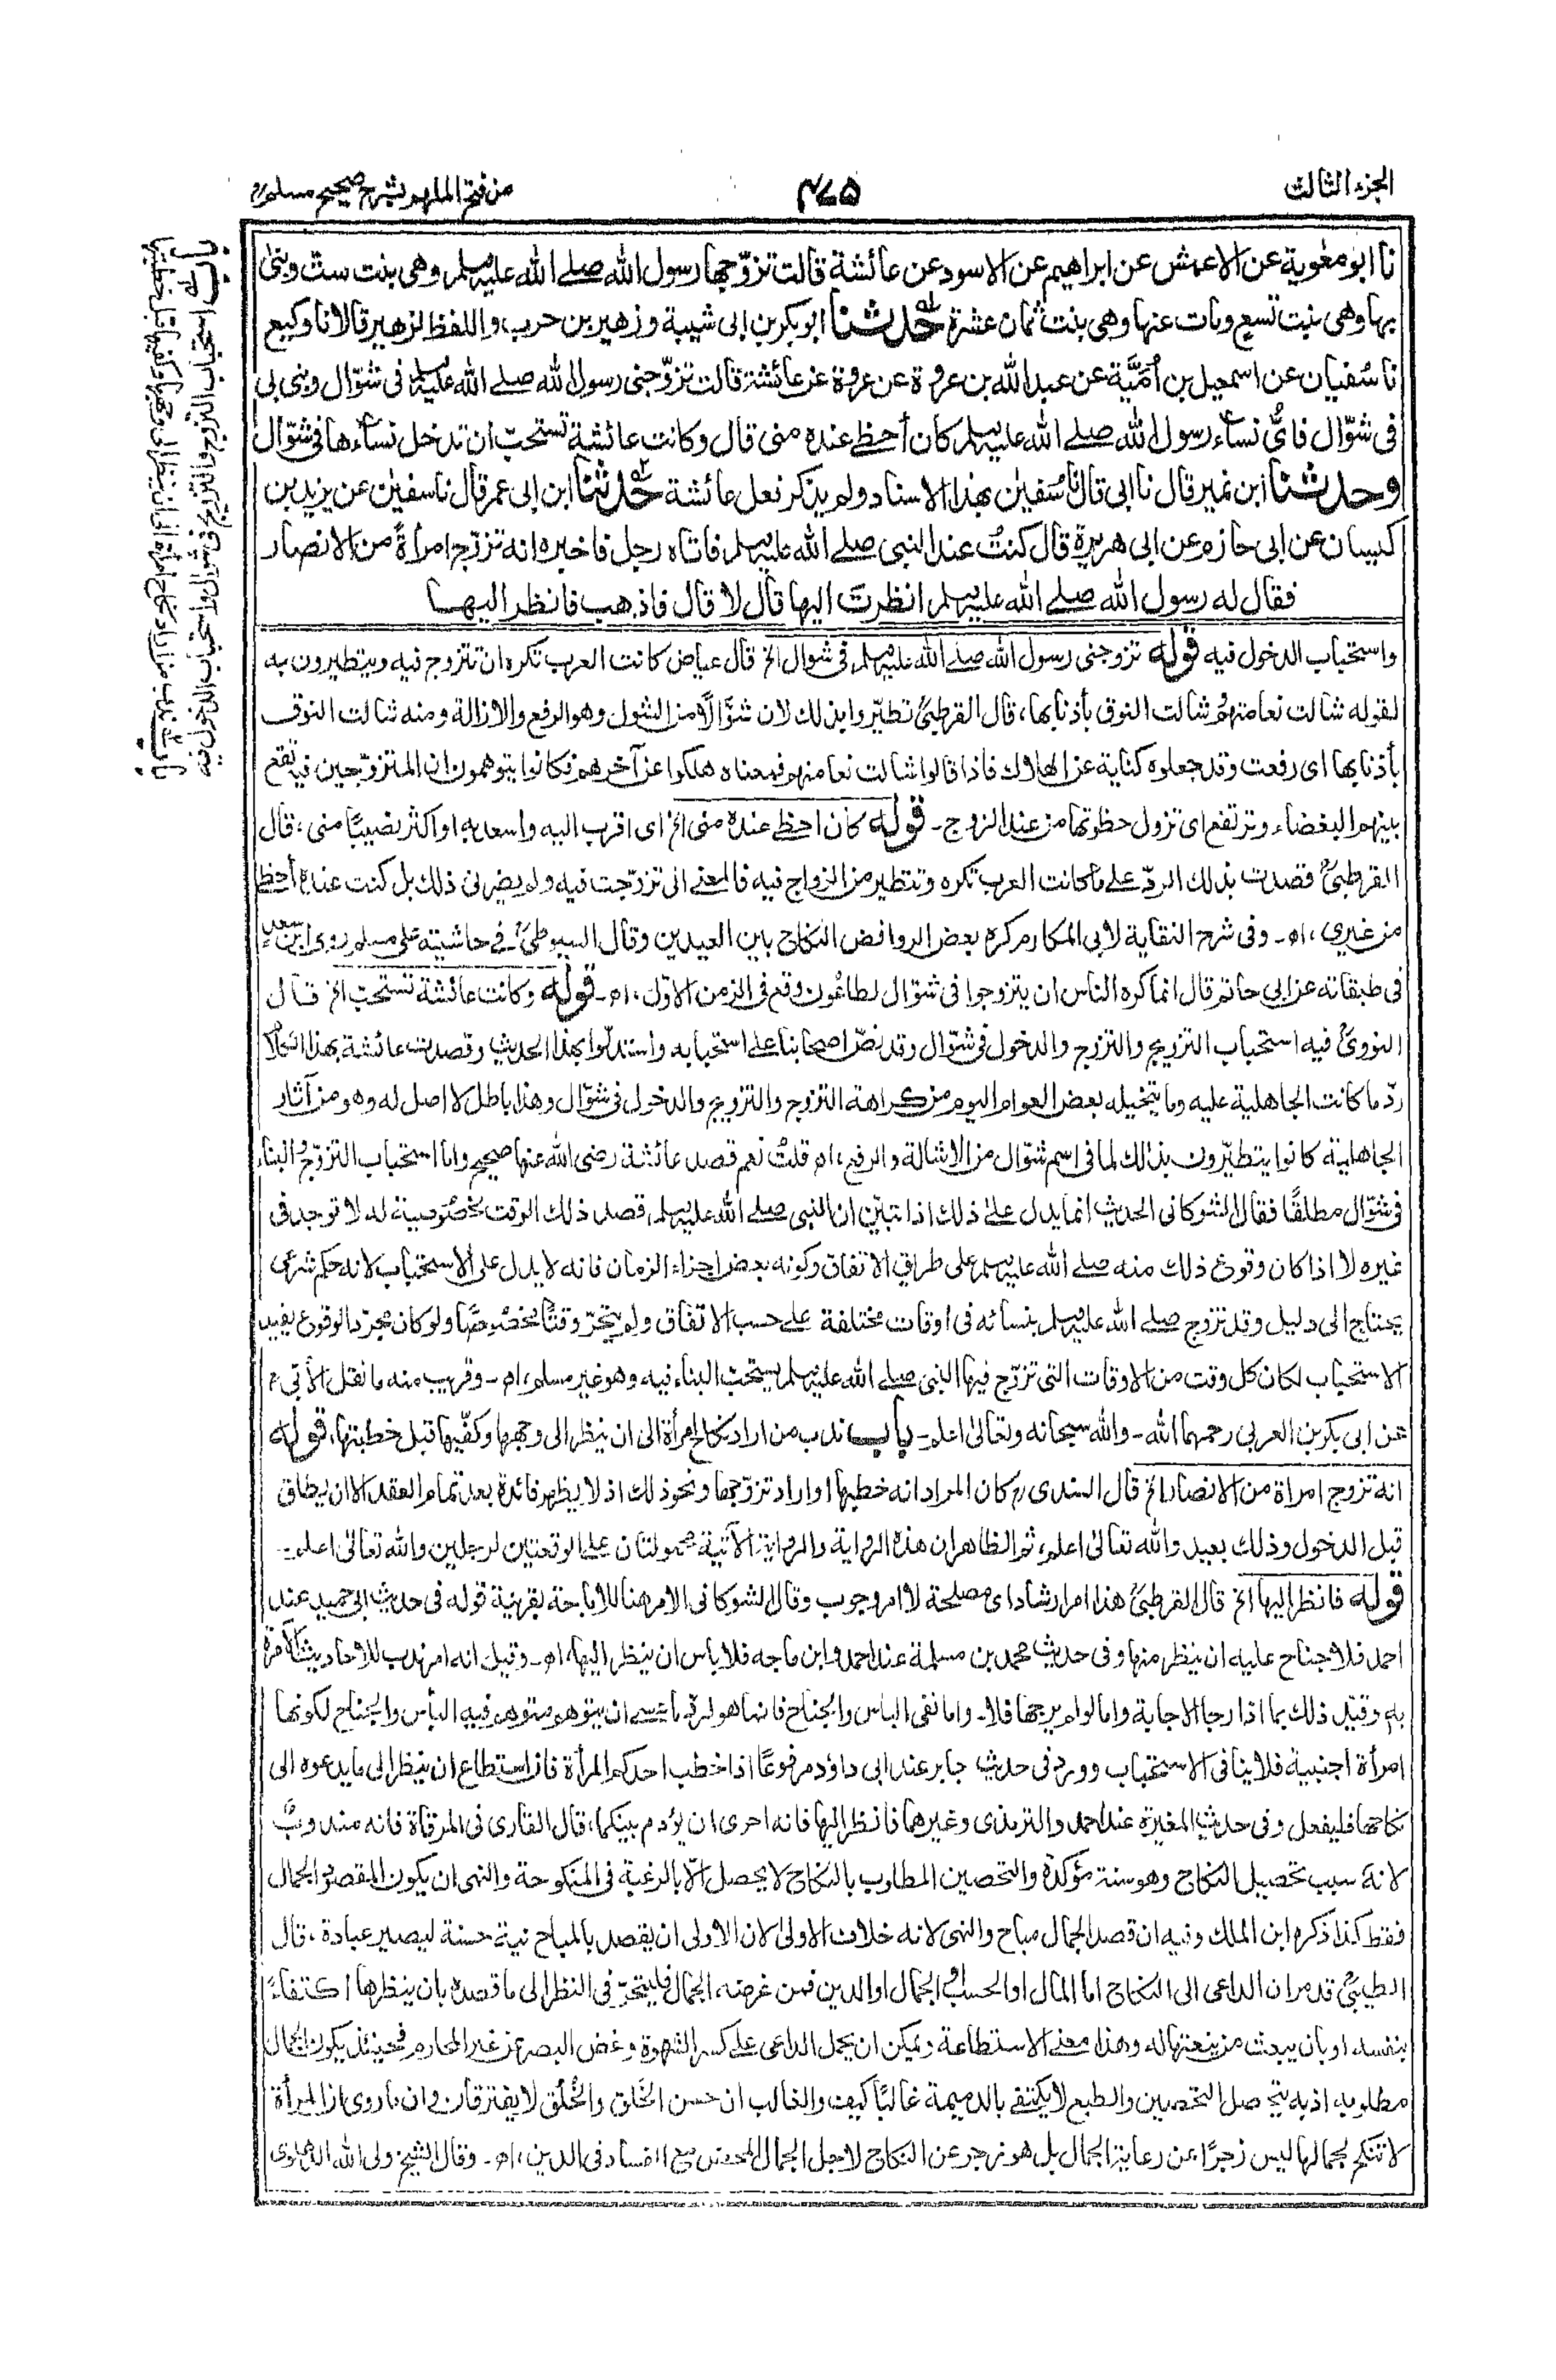 الجزء الثالث
٤٧٥
من فتح الملهم بشرح صحيح مسلم
نا ابو معٰوية عن الاعمش عن ابراهيم عن الاسود عن عائشة قالت تزوّجها رسول الله صلے الله عليه وسلم وهى بنت ست وبنىٰ
بها وهى بنت تسع ومات عنها وهى بنت ثمان عشرة حدثنا ابو بكر بن ابى شيبة وزهير بن حرب واللفظ لزهير قالا نا وكيع
نا سُفيان عن اسمعيل بن أُمَيَّة عن عبد الله بن عروة عن عروة عن عائشة قالت تزوّجنى رسول الله صلے الله عليه وسلم فى شوّال وبنى بى
فى شوّال فاىُّ نساء رسول الله صلے الله عليه وسلم كان أحظ عنده منى قال وكانت عائشة تستحبّ ان تدخل نساءها فى شوّال
وحدثنا ابن نمير قال نا ابى قال نا سُفيٰن بهذا الاسناد ولم يذكر فعل عائشة حدثنا ابن ابى عمر قال نا سفيٰن عن يزيد بن
كيسان عن ابى حازم عن ابى هريرة قال كنتُ عند النبى صلے الله عليه وسلم فاتاه رجل فاخبره انه تزوّج امرأةً من الانصار
فقال له رسول الله صلے الله عليه وسلم انظرتَ اليها قال لا قال فاذهب فانظر اليها
واستحباب الدخول فيه قوله تزوجنى رسول الله صلے الله عليه وسلم فى شوال الخ قال عياض كانت العرب تكره ان تتزوج فيه ويتطيرون به
لقوله شالت نعامتهم وشالت النوق بأذنابها، قال القرطبىؒ تطيّروا بذلك لان شوّالًا من الشول وهو الرفع والازالة ومنه شالت النوق
بأذنابها اى رفعت وقد جعلوه كناية عن الهلاك فاذا قالوا شالت نعامتهم فمعناه هلكوا عن آخرهم فكانوا يتوهمون ان المتزوّجين فيه تقع
بينهم البغضاء وترتفع اى تزول حظوتها من عند الزوج۔ قوله كان احظ عنده منى الخ اى اقرب اليه واسعد به او اكثر نصيبًا منى، قال
القرطبىؒ قصدت بذلك الردّ علے ما كانت العرب تكره وتتطير من الزواج فيه فالمعنے انى تزوّجت فيه ولم يضرنى ذلك بل كنت عنده أحظ
من غيرى، اھ۔ وفى شرح النقاية لابى المكارم كره بعض الروافض النكاح بين العيدين وقال السيوطىؒ فے حاشيته على مسلم روى ابن سعد
فى طبقاته عن ابى حاتم قال انما كره الناس ان يتزوجوا فى شوّال لطاعون وقع فى الزمن الاوّل، اھ۔ قوله وكانت عائشة تستحبّ الخ قال
النووىؒ فيه استحباب التزويج والتزوج والدخول فى شوّال وقد نصّ اصحابنا علے استحبابه واستدلّوا بهذا الحديث وقصدت عائشة بهذا الكلام
ردّ ما كانت الجاهلية عليه وما يتخيله بعض العوام اليوم من كراهة التزوج والتزويج والدخول فى شوّال وهذا باطل لا اصل له وهو من آثار
الجاهلية كانوا يتطيّرون بذلك لما فى اسم شوّال من الاشالة والرفع، اھ قلتُ نعم قصد عائشة رضى الله عنها صحيح واما استحباب التزوّج والبناء
فى شوّال مطلقًا فقال الشوكانى الحديث انما يدل علىٰ ذلك اذا تبيّن ان النبى صلے الله عليه وسلم قصد ذلك الوقت لخصوصية له لا توجد فى
غيره لا اذا كان وقوع ذلك منه صلے الله عليه وسلم على طريق الاتفاق وكونه بعض اجزاء الزمان فانه لا يدل على الاستحباب لانه حكم شرعى
يحتاج الى دليل وقد تزوج صلے الله عليه وسلم بنسائه فى اوقات مختلفة علے حسب الاتفاق ولم يتحرّ وقتًا مخصوصًا ولو كان مجرّد الوقوع يفيد
الاستحباب لكان كل وقت من الاوقات التى تزوّج فيها النبى صلے الله عليه وسلم يستحبّ البناء فيه وهو غير مسلم، اھ۔ وقريب منه ما نقل الأبىؒ
عن ابى بكر بن العربى رحمهما الله۔ والله سبحانه وتعالىٰ اعلم۔ باب ندب من اراد نكاح امرأة الى ان ينظر الى وجهها وكفّيها قبل خطبتها، قوله
انه تزوج امراة من الانصار الخ قال السندىؒ كان المراد انه خطبها او اراد تزوّجها ونحو ذلك اذ لا يظهر فائدة بعد تمام العقد الا ان يطلق
قبل الدخول وذلك بعيد والله تعالىٰ اعلم، ثم الظاهر ان هذه الرواية والرواية الآتية محمولتان على الوقعتين لرجلين والله تعالىٰ اعلم۔
قوله فانظر اليها الخ قال القرطبىؒ هذا امر ارشاد اى مصلحة لا امر وجوب وقال الشوكانى الامر هنا للاباحة بقرينة قوله فى حديث ابى حميد عند
احمد فلا جناح عليه ان ينظر منها وفى حديث محمد بن مسلمة عند احمد وابن ماجه فلا باس ان ينظر اليها، اھ۔ وقيل انه امر ندب للاحاديث الآمرة
به وقيّل ذلك بما اذا رجا الاجابة واما لو لم يرجها فلا۔ واما نفى الباس والجناح فانما هو لرفع ما عسى ان يتوهم متوهم فيه الباس والجناح لكونها
امرأة اجنبية فلا ينافى الاستحباب وورد فى حديث جابر عند ابى داؤد مرفوعًا اذا خطب احدكم المرأة فان استطاع ان ينظر الى ما يدعوه الى
نكاحها فليفعل وفى حديث المغيرة عند احمد والترمذى وغيرهما فانظر اليها فانه احرى ان يؤدم بينكما، قال القارى فى المرقاة فانه مندوبٌ
لانه سبب تحصيل النكاح وهو سنة مؤكدة والتحصين المطلوب بالنكاح لا يحصل الّا بالرغبة فى المنكوحة والنهى ان يكون المقصود الجمال
فقط كذا ذكره ابن الملك وفيه ان قصد الجمال مباح والنهى لانه خلاف الاولىٰ لان الاولى ان يقصد بالمباح نية حسنة ليصير عبادة، قال
الطيبىؒ قد مر ان الداعى الى النكاح اما المال او الحسب او الجمال او الدين فمن غرضه الجمال فليتحرّ فى النظر الى ما قصده بان ينظرها اكتفاءً
بنفسه او بان يبعث من ينعتها له وهذا معنے الاستطاعة ويمكن ان يحمل الداعى علے كسر الشهوة وغض البصر عن غير المحارم فحينئذ يكون الجمال
مطلوبه اذ به يتحصل التحصين والطبع لا يكتفے بالدميمة غالبًا كيف والغالب ان حسن الخَلق والخُلق لا يفترقان وان ما روى ان المرأة
لا تنكح لجمالها ليس زجرًا عن رعاية الجمال بل هو زجر عن النكاح لاجل الجمال المحض مع الفساد فى الدين، اھ۔ وقال الشيخ ولى الله الدهلوى
باب استحباب التزوج والتزويج فى شوال واستحباب الدخول فيه
باب ندب من اراد نكاح امرأة الى ان ينظر الى وجهها وكفيها قبل خطبتها